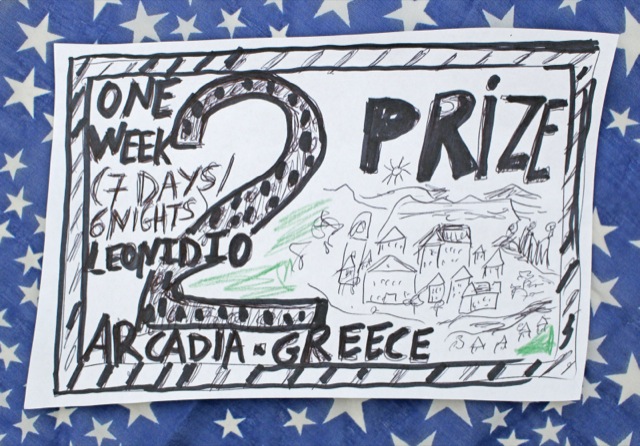 ONE
WEEK
(7 DAYS/
6 NIGHTS
LEONIDIO
2 PRiZE
ARCADIA - GREECE